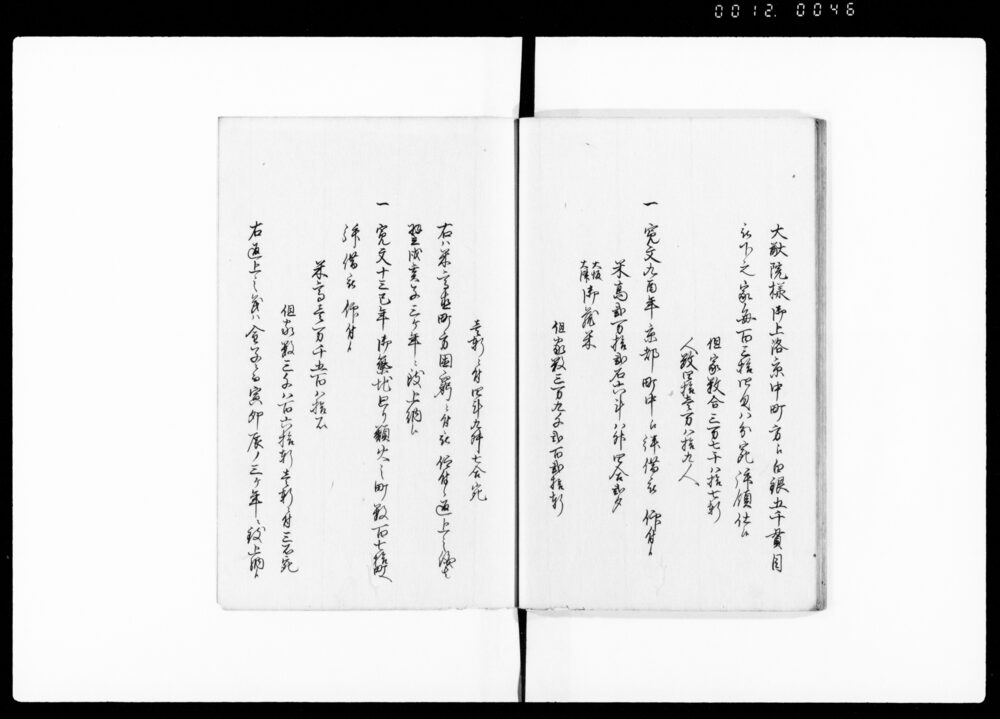 0012.0046
大猷院様御上洛京中町方江白銀五千貫目
被下之家毎百三拾四匁八分宛拝領仕候
但家数合三万七千八拾七軒
人数四拾壱万八拾九人
一 寛文九酉年京都町中江拝借被 仰付候
米高弐万拾弐石六斗八升四合弐夕
大坂大津御蔵米
但家数三万九千弐百弐拾軒
壱軒ニ付四斗九升七合宛
右ハ米高直町方困窮ニ付被 仰付候返上之儀
翌戌亥子三ヶ年ニ致上納候
一 寛文十三巳年御築地より類火之町数百十
拝借被 仰付候
米高壱万千五百八拾石
但家数三千八百六拾軒壱軒ニ付三石宛
右返上之義ハ金子ニ而寅卯辰ノ三ヶ年ニ致上納候